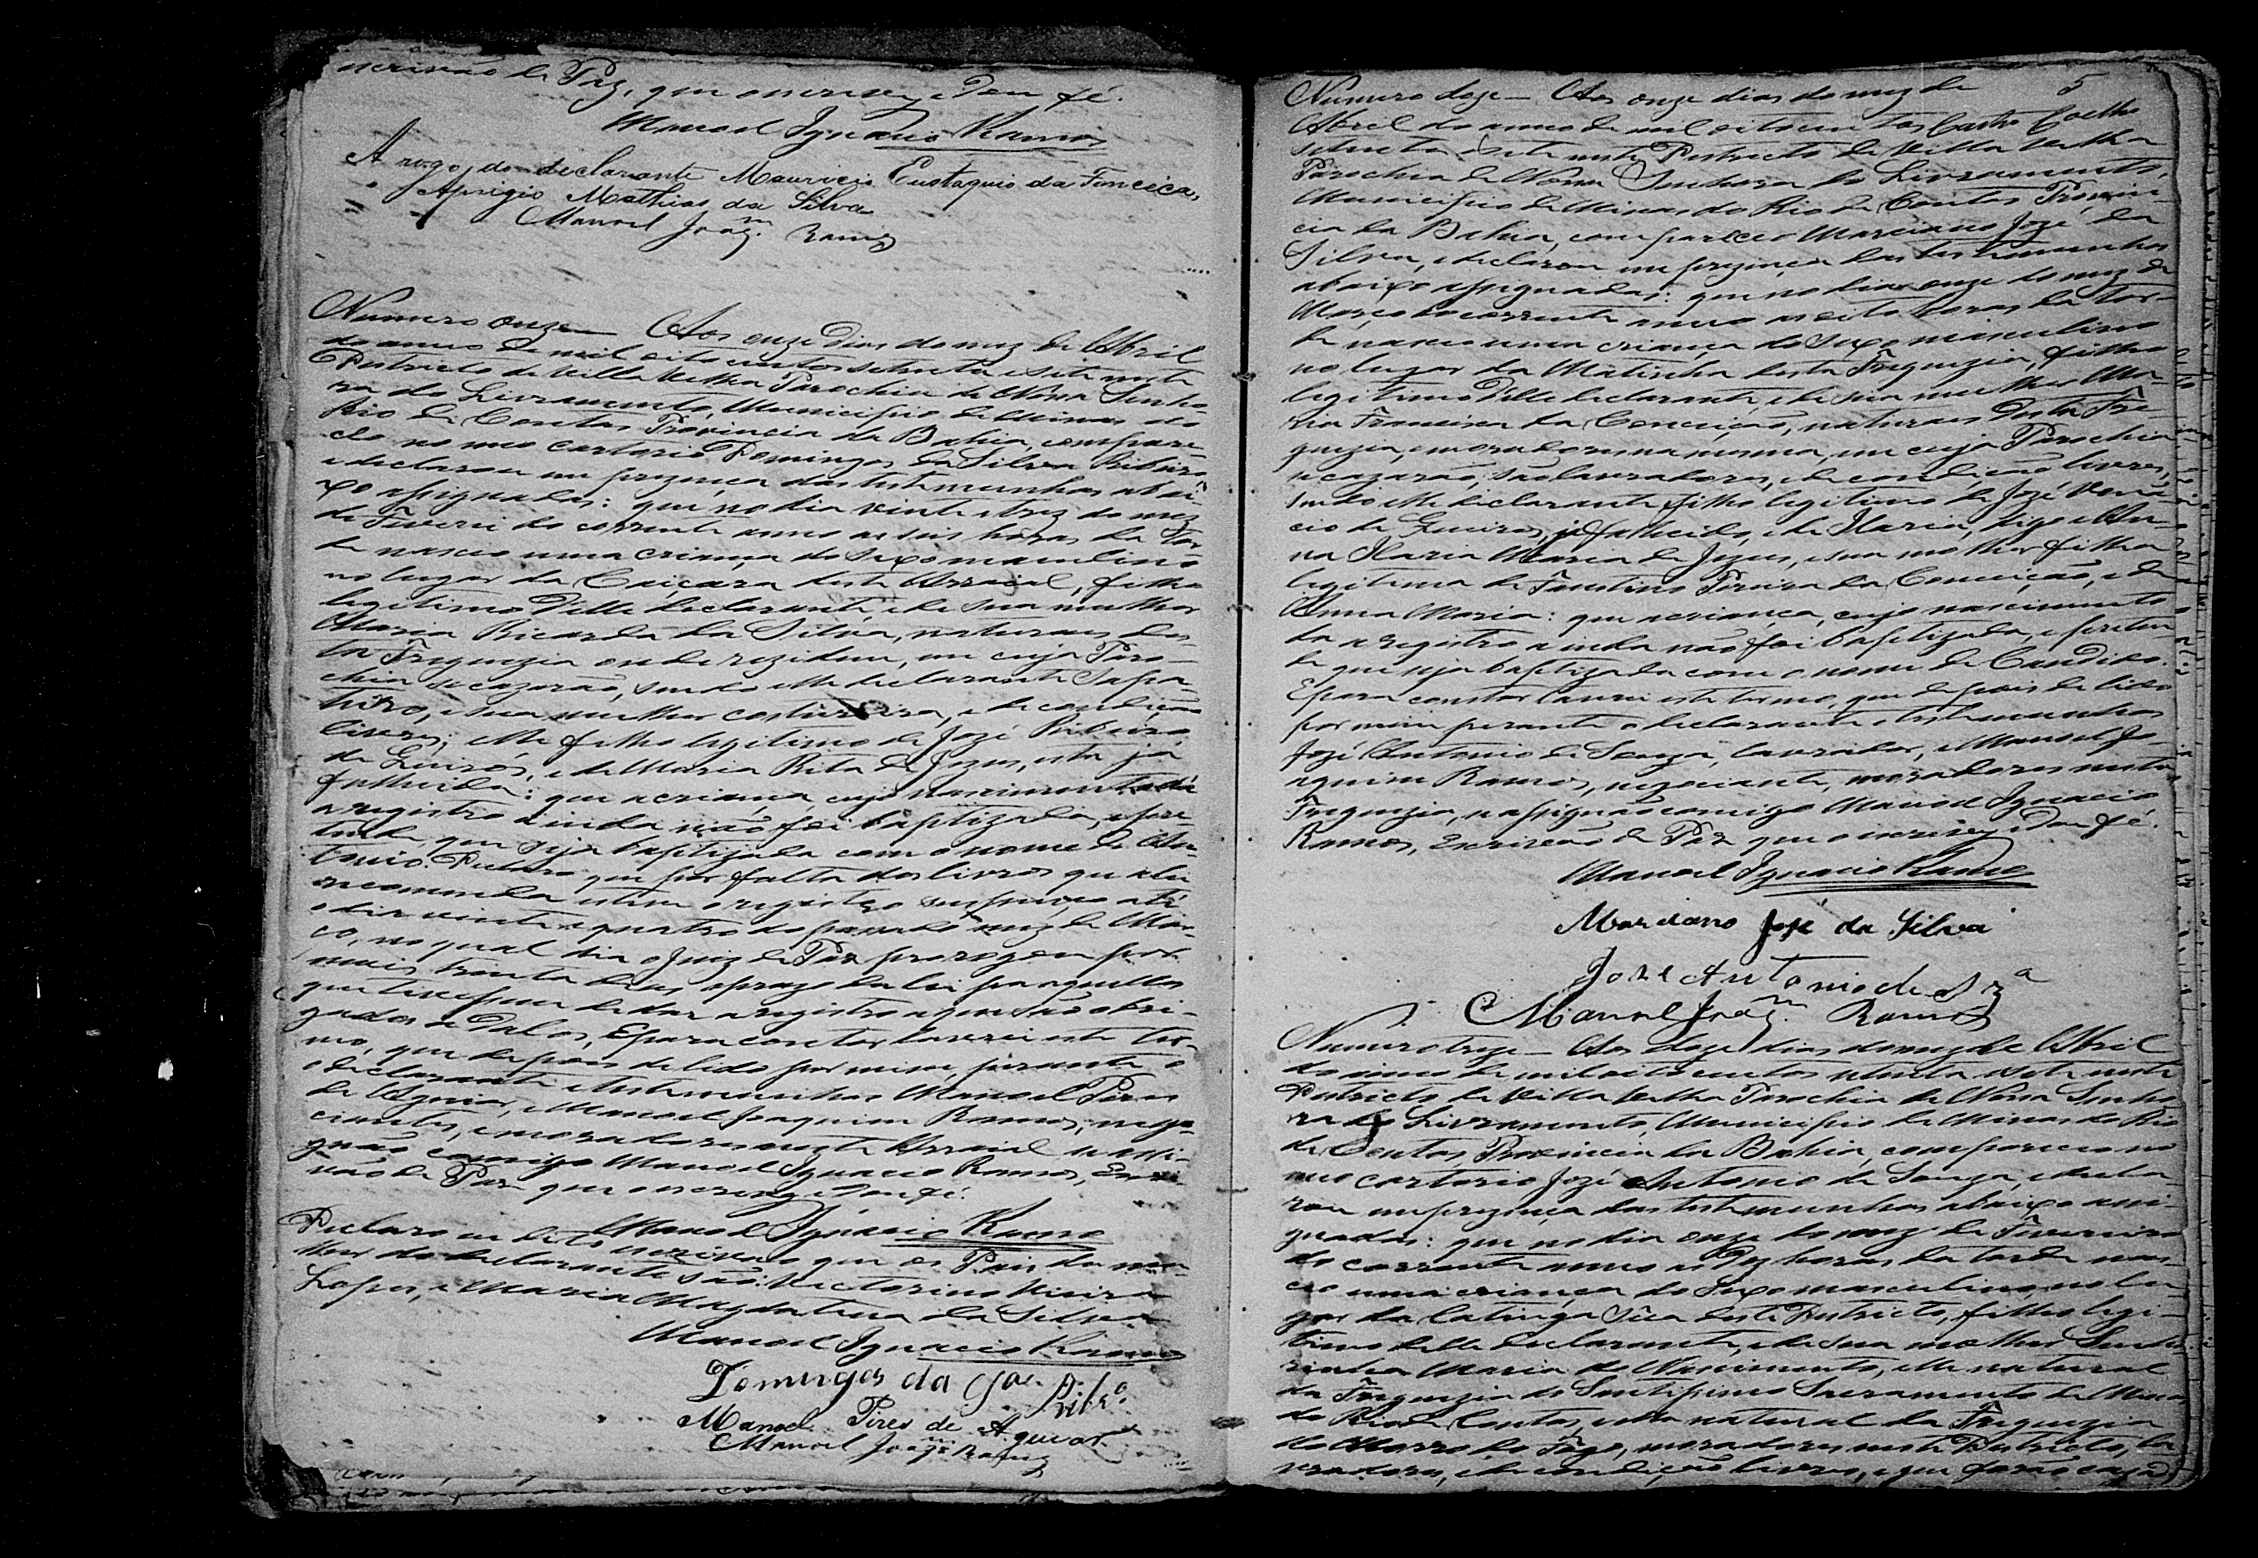 escrivão de Paz, que o escrevy e dou fé.
Manoel Ignacio Ramos
A rogo do declarante Mauricio Eustaquio da Fonceca,
Aprigio Mathias da Silva
Manoel Joaqm. Ramos
Numero onze — Aos onze dias do mez de Abril
do anno de mil oito centos setenta e sete neste
Destricto de Villa Velha Parochia de Nossa Senho-
ra do Livramento, Municipio de Minas do
Rio de Contas Provincia da Bahia, compare-
ceo no meo cartorio Domingos da Silva Ribeiro,
e declarou em prezença das testemunhas abai-
xo assignadas: que no dia vinte e trez do mez
de Fevereiro do corrente anno as seis horas da tar-
de nasceo uma criança do sexo masculino
no lugar da Caiçara deste Arraial, filho
legitimo delle declarante, e de sua mulher
Maria Ricarda da Silva, naturaes des-
ta Freguezia onde rezidem, em cuja Paro-
chia se cazarão, sendo elle declarante sapa-
teiro, e sua mulher costureira, e de condição
livres; elle filho legitimo de José Ribeiro
de Queiros, e de Maria Rita de Jezus, esta ja
fallecida: que a criança cujo nascimento dá
a registro ainda não foi baptizada, e pre-
tende que seja baptizada com o nome de An-
tonio. Declaro que por falta dos livros que a lei
recomenda esteve o registro suspenço até
o dia vinte e quatro do passado mez de Mar-
ço, no qual dia o Juiz de Paz prorogou por
mais trinta dias o prazo da lei pa. aquelles
que tivessem de dar a registro a que são obri-
gados a dalos, E para constar lavrei este ter-
mo, que depois de lido por mim, perante o
declarante e testemunhas Manoel Pires
de Aguiar, e Manoel Joaquim Ramos, nego-
ciantes, e moradores neste Arraial se assi-
gnão comigo Manoel Ignacio Ramos, Escri-
vão de Paz que o escrevy e dou fé.
Manoel Ignacio Ramos
Declaro em tempo que os Pais da mu-
lher do declarante são: Victorino Vieira
Lopes, e Maria Magdalena da Silva
Manoel Ignacio Ramos
Domingos da Sa. Ribro.
Manoel Pires de Aguiar
Manoel Joaqm. Ramos
5
Numero doze — Aos onze dias do mez de
Abril do anno de mil oito centos Castro Coelho
setenta e sete neste Destricto de Villa Velha
Parochia de Nossa Senhora do Livramento,
Municipio de Minas do Rio de Contas Provin-
cia da Bahia, compareceo Marciano José da
Silva, e declarou em prezença das testemunhas
abaixo assignadas: que no dia onze do mez de
Março do corrente anno as oito horas da tar-
de nasceo uma criança do sexo masculino
no lugar da Matinha desta Freguezia, filho
legitimo delle declarante, e de sua mulher Ma-
ria Francisca da Conceição, naturaes desta Fre-
guezia, e moradores na mesma, em cuja Parochia
se cazarão, são lavradores, e de condição livres,
sendo elle declarante filho legitimo de José Venan-
cio de Queiros, já fallecido, e de Ilaria, digo e An-
na Ilaria Maria de Jezus, e sua mulher filha
legitima de Faustino Pereira da Conceição, e de
Anna Maria: que a criança, cujo nascimento
da a registro ainda não foi baptizada, e preten-
de que seja baptizada com o nome de Candido.
E para constar lavrei este termo, que depois de lido
por mim perante o declarante e testemunhas
José Antonio de Souza, lavrador, e Manoel Jo-
aquim Ramos, negociante, moradores nesta
Freguezia, se assignão comigo Manoel Ignacio
Ramos, Escrivão de Paz que o escrevy e dou fé.
Manoel Ignacio Ramos
Marciano José da Silva
Joze Antonio de Sza
Manoel Joaqm. Ramos
Numero treze — Aos doze dias do mez de Abril
do anno de mil oito centos setenta e sete neste
Destricto de Villa Velha Parochia de Nossa Senho-
ra do Livramento, Municipio de Minas do Rio
de Contas Provincia da Bahia, compareceo no
meo cartorio José Antonio de Souza, e decla-
rou em prezença das testemunhas abaixo assi-
gnadas: que no dia onze do mez de Fevereiro
do corrente anno as dez horas da tarde nas-
ceo uma criança do sexo masculino, no lu-
gar da Catinga deste Destricto, filho legi-
timo delle declarante, e de sua mulher
Maria do Nascimento, elle natural
da Freguezia do Santissimo Sacramento de Minas
do Rio de Contas, e ella natural da Freguezia
do Morro do Fogo, moradores neste Destricto, la-
vradores, e de condição livres, e que forão caza-